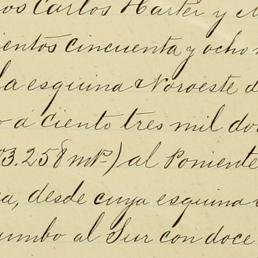 os Carlos Harter y M
ientos cincuenta y ocho m
la esquina Noroeste d
o a ciento tres mil dos
03.258 mts.) al Poniente
a, desde cuya esquina
umbo al Sur con doce